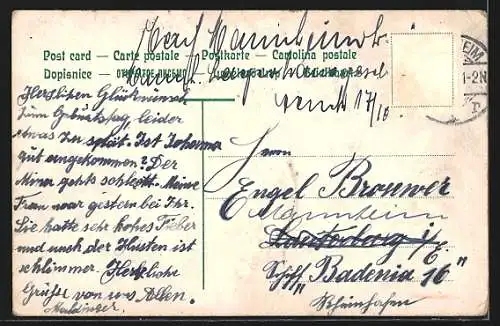 Nach Mannheim
Post card — Carte postale — Postkarte — Cartolina postale
Dopisnice —
17/10
Herzlichen Glückwunsch
zum Geburtstag, leider
etwas zu spät. Ist Johanna
gut angekommen? Der
Miner gehts schlecht. Meine
Frau war gestern bei Ihr.
Sie hatte sehr hohes Fieber
und auch der Husten ist
schlimmer. Herzliche
Grüße von uns Allen.
Herrn
Engel Brouwer
Mannheim
Lauterburg i/E
Schiff "Badenia 16"
Rheinhafen
EIM
1-2N